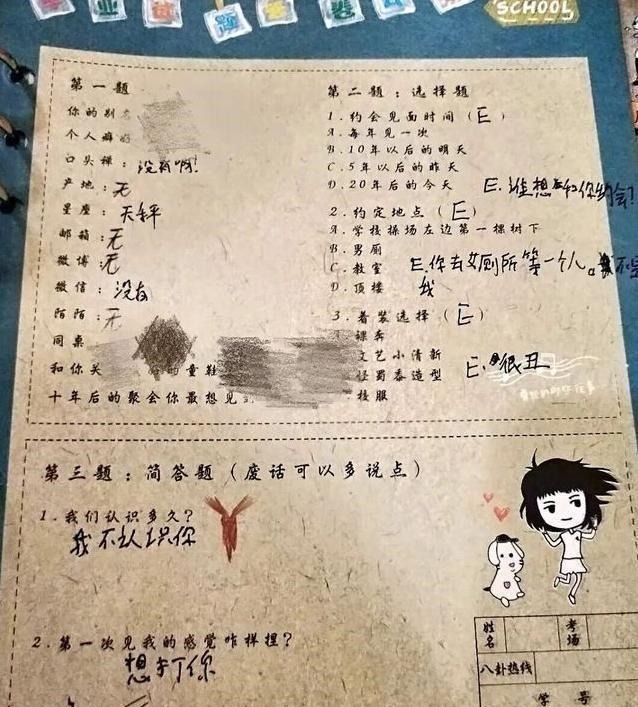 SCHOOL
第一题
你的别
个人癖好
口头禅：没有啊！
产地：无
星座：天秤
邮箱：无
微博：无
微信：没有
陌陌：无
同桌
和你关 的童鞋
十年后的聚会你最想见到
第二题：选择题
1.约会见面时间（E）
A.每年见一次
B.10年以后的明天
C.5年以后的昨天
D.20年后的今天 E.谁想和你约会！
2.约定地点（E）
A.学校操场左边第一棵树下
B.男厕
C.教室 E.你去女厕所等一个人。
D.顶楼 我
3.着装选择（E）
裸奔
文艺小清新
怪蜀黍造型 E.很丑
校服
第三题：简答题（废话可以多说点）
1.我们认识多久？
我不认识你
2.第一次见我的感觉咋样捏？
想打你
姓名
考场
八卦热线
学号